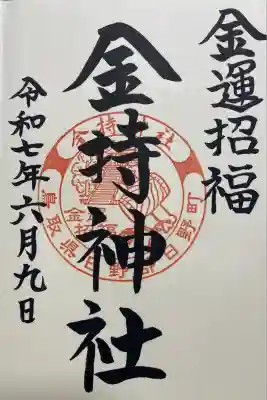 金運招福
金持神社
令和七年六月九日
金持神社
鳥取県日野郡日野町